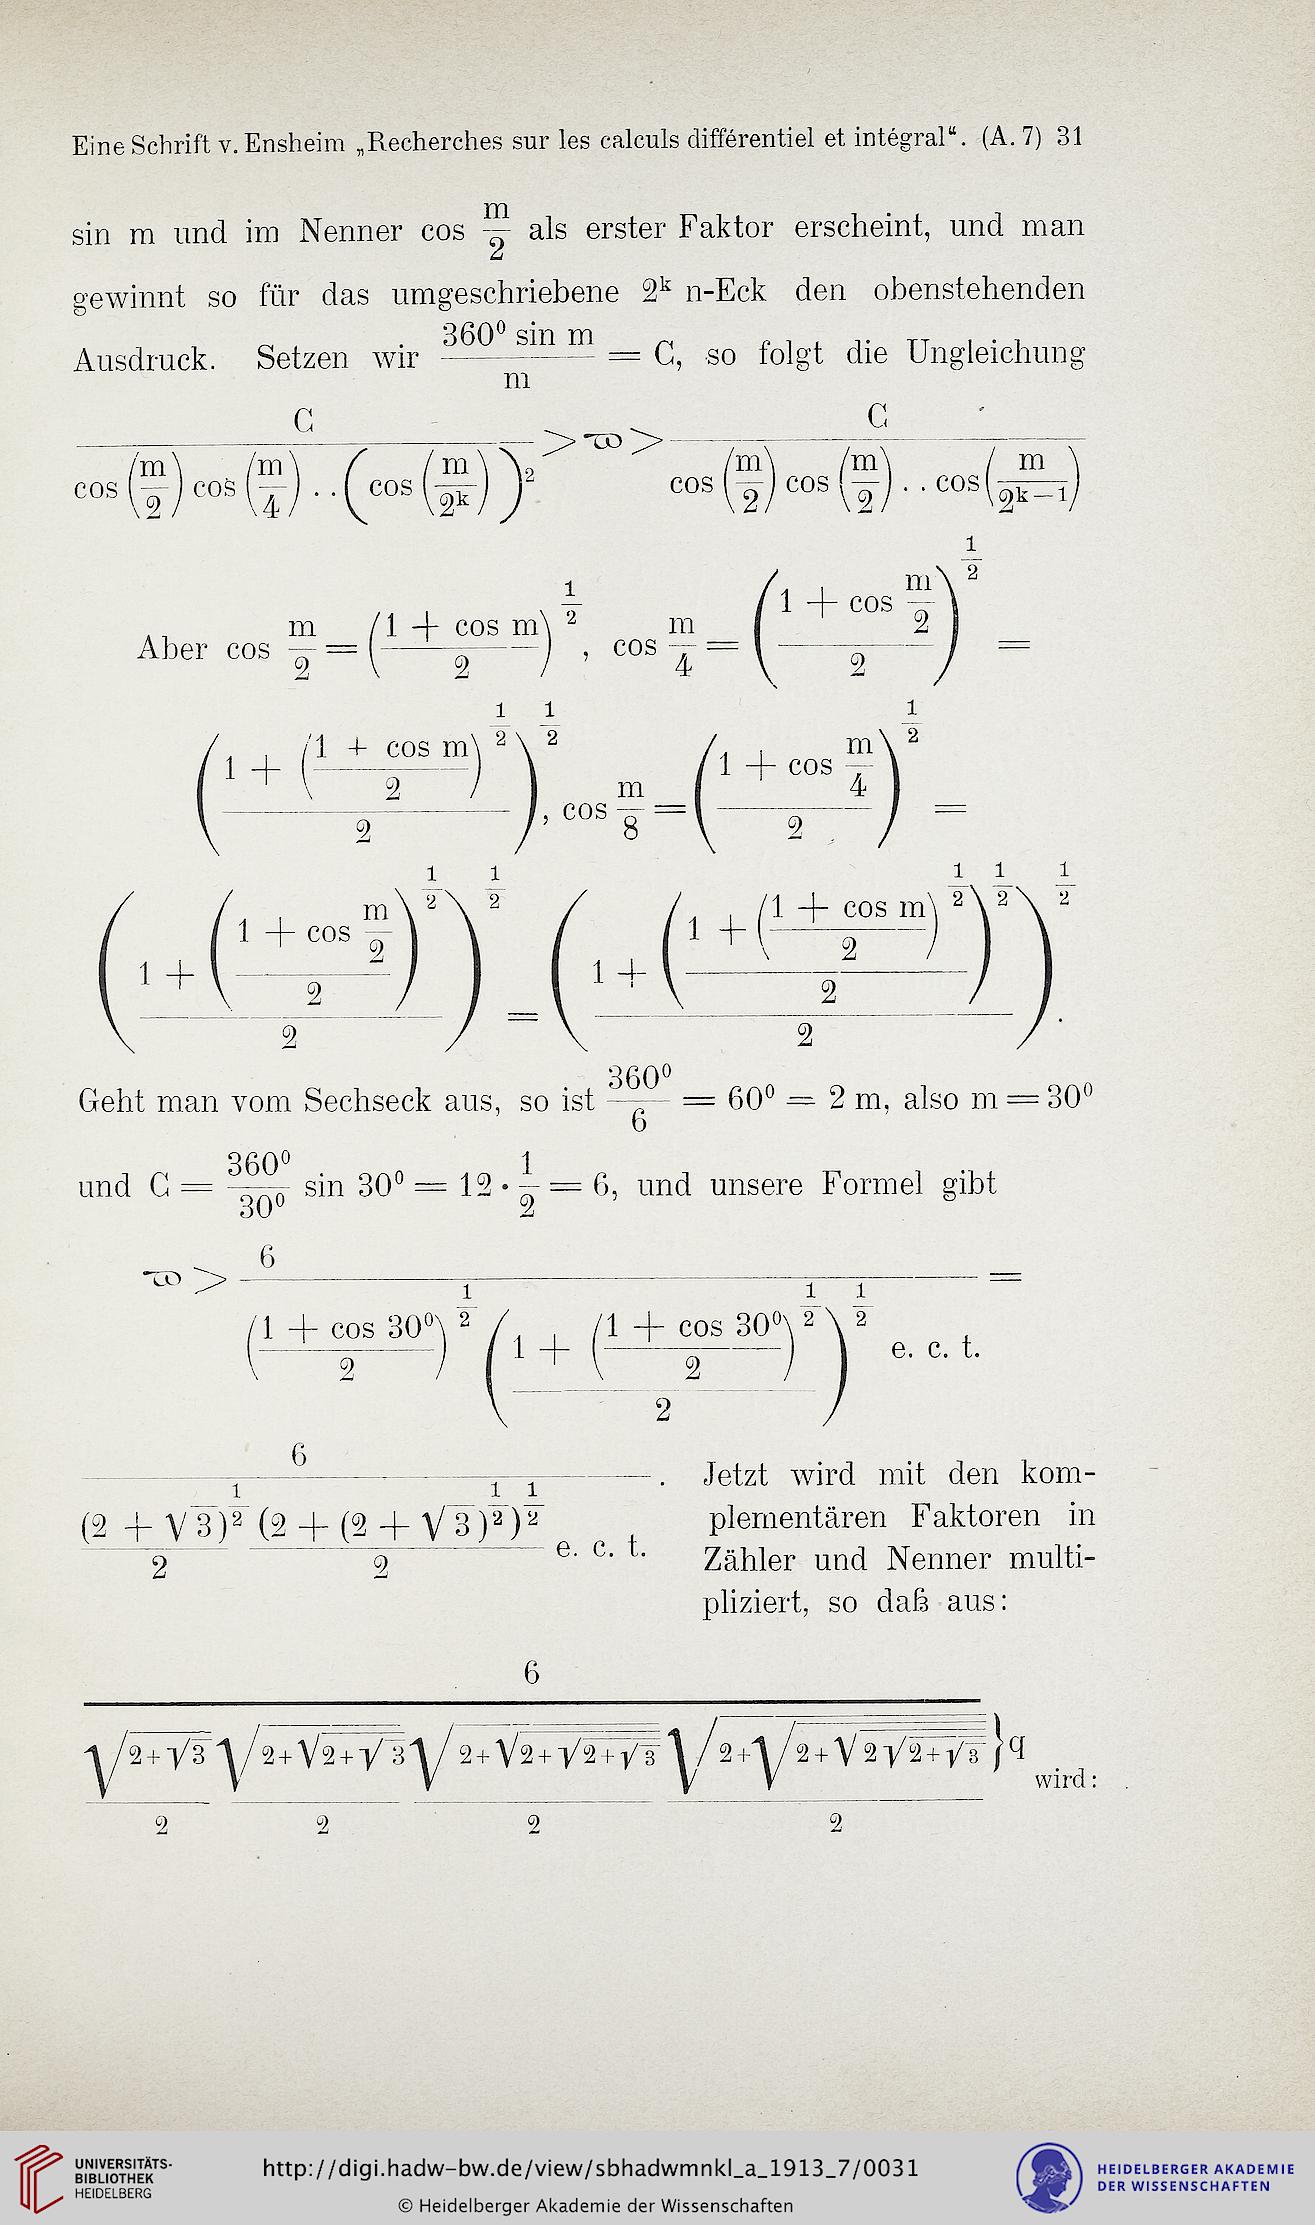 Eine Schrift v. Ensheim „Recherches sur les calculs différentiel et intégral“. (A. 7) 31
sin m und im Nenner cos m/2 als erster Faktor erscheint, und man
gewinnt so für das umgeschriebene 2^k n-Eck den obenstehenden
Ausdruck. Setzen wir 360⁰ sin m / m = C, so folgt die Ungleichung
C / (cos (m/2) cos (m/4) . . (cos (m/2^k))²) > ϖ > C / (cos (m/2) cos (m/2) . . cos (m/2^(k—1)))
Aber cos m/2 = ((1 + cos m)/2)^(1/2), cos m/4 = ((1 + cos m/2)/2)^(1/2) =
((1 + ((1 + cos m)/2)^(1/2))/2)^(1/2), cos m/8 = ((1 + cos m/4)/2)^(1/2) =
((1 + ((1 + cos m/2)/2)^(1/2))/2)^(1/2) = ((1 + ((1 + ((1 + cos m)/2)^(1/2))/2)^(1/2))/2)^(1/2).
Geht man vom Sechseck aus, so ist 360⁰/6 = 60⁰ = 2 m, also m = 30⁰
und C = 360⁰/30⁰ sin 30⁰ = 12 · 1/2 = 6, und unsere Formel gibt
ϖ > 6 / (((1 + cos 30⁰)/2)^(1/2) ((1 + ((1 + cos 30⁰)/2)^(1/2))/2)^(1/2) e. c. t.) =
6 / ((2 + √3)^(1/2)/2 (2 + (2 + √3)^(1/2))^(1/2)/2 e. c. t.). Jetzt wird mit den kom-
plementären Faktoren in
Zähler und Nenner multi-
pliziert, so daß aus:
6 / (√(2+√3)/2 √(2+√(2+√3))/2 √(2+√(2+√(2+√3)))/2 √(2+√(2+√(2√(2+√3))))/2) } q
wird:
UNIVERSITÄTS-
BIBLIOTHEK
HEIDELBERG
http://digi.hadw-bw.de/view/sbhadwmnkl_a_1913_7/0031
© Heidelberger Akademie der Wissenschaften
HEIDELBERGER AKADEMIE
DER WISSENSCHAFTEN